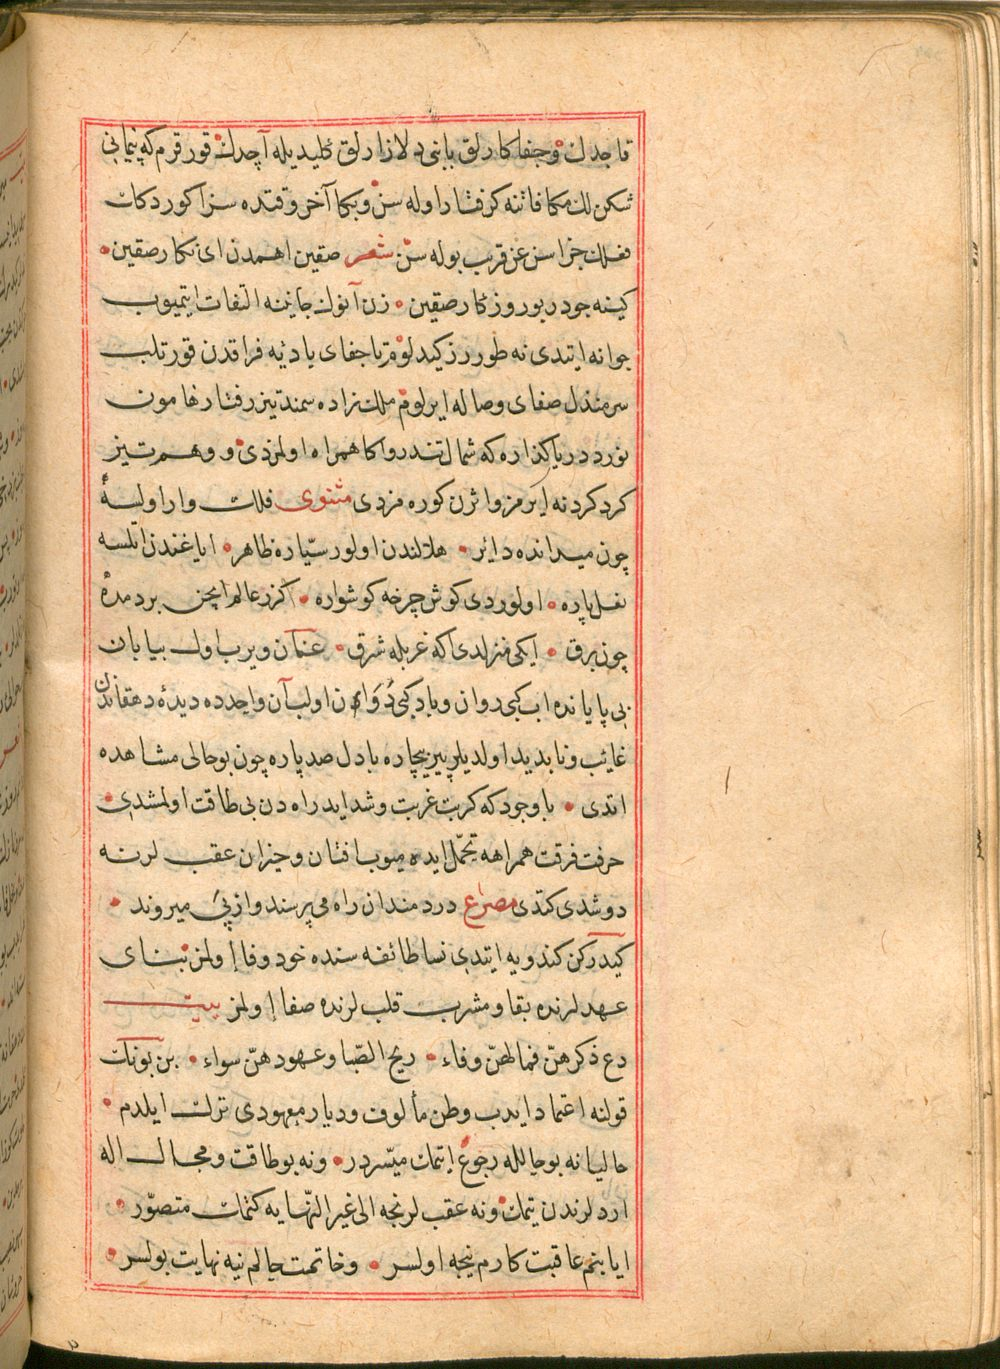 قاجدك وجفاكارلق بابنی دلازارلق كلیدیله آچدك قورقرم كه پیمانی
شكن لك مكافاتنه كرفتار اوله سن وبكا آخر وقتده سزا كوردكك
فعلك جزاسن عن قریب بوله سن شعر صقین اهمدن ای نكار صقین
كینه جودر بو روزكار صقین زن آنوك جانبنه التفات ایتمیوب
جوانه ایتدی نه طورر زكیده لوم تا جفای بادیه فراقدن قورتلب
سرمنزل صفای وصاله ایره لوم ملك زاده سمند تیزرفتار هامون
نورد دریاكذاره كه شمال تندرو اكا همراه اولمزدی ووهم تیز
كرد كردنه ایرمز واثرن كوره مزدی مثنوی فلك وار اولسه
چون میدانده دائر هلالندن اولور سیّاره ظاهر ایاغندن اتلسه
نعل پاره اولوردی كوش چرخه كوشواره كزر عالم ایچن بردمده
چون برق ایكی منزلدی اكه غربله شرق عنان ویرب اول بیابان
بی پایانده اب كبی روان وباد كبی دوان اولب آن واحدده دیدۀ دهقاندن
غائب ونابدید اولدیلر پیر بیچاره بادل صدپاره چون بو حالی مشاهده
اتدی باوجودكه كربت غربت وشداید راه دن بی طاقت اولمشدی
حرقت فرقت همراهه تحمّل ایده میوب افتان وخیزان عقب لرنه
دوشدی كتدی مصراع دردمندان راه می پرسند واز پی میروند
كیدركن كندویه ایتدی نسا طائفه سنده خود وفا اولمز بنای
عهدلرنده بقا ومشرب قلب لرنده صفا اولمز بیت
دع ذكرهنّ فما لهنّ وفاء ریح الصّبا وعهودهنّ سواء بن بونك
قولنه اعتماد ایدب وطن مألوف ودیار معهودی ترك ایلدم
حالیا نه بو حالله رجوع ایتمك میسّردر ونه بو طاقت ومجال اله
اردلرندن یتمك ونه عقب لرنجه الی غیر النّهایه كتمك متصوّر
ایا بنم عاقبت كارم نیجه اولسر وخاتمت حالم نیه نهایت بولسر